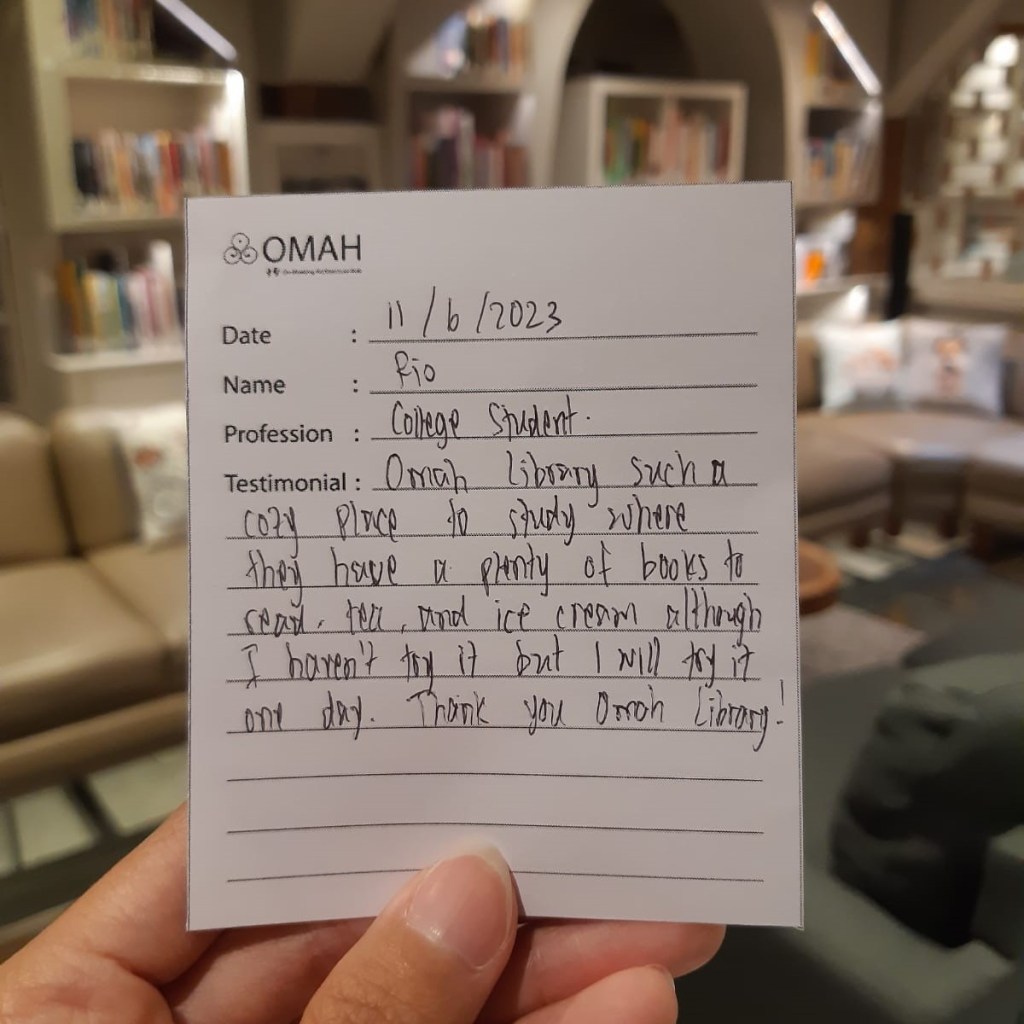 OMAH
Date : 11/6/2023
Name : Rio
Profession : College Student.
Testimonial : Omah Library such a
cozy place to study where
they have a plenty of books to
read, tea, and ice cream although
I haven't try it but I will try it
one day. Thank you Omah Library!